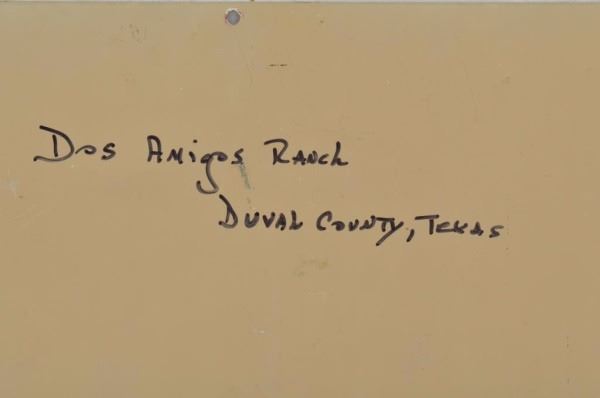 Dos Amigos Ranch
Duval County, Texas